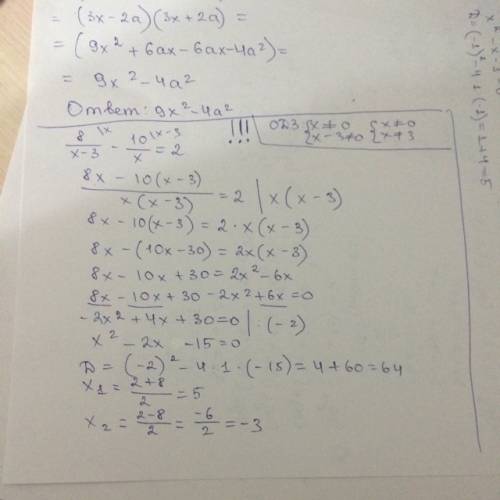 = (3x - 2a)(3x + 2a) =
= (9x² + 6ax - 6ax - 4a²) =
= 9x² - 4a²
Ответ: 9x² - 4a²
8/(x-3) |x - 10/x |x-3 = 2 !!! ОДЗ {x≠0 {x≠0
{x-3≠0 {x≠3
(8x - 10(x-3))/(x(x-3)) = 2 | x(x-3)
8x - 10(x-3) = 2·x(x-3)
8x - (10x-30) = 2x(x-3)
8x - 10x + 30 = 2x² - 6x
8x - 10x + 30 - 2x² + 6x = 0
-2x² + 4x + 30 = 0 | :(-2)
x² - 2x - 15 = 0
D = (-2)² - 4·1·(-15) = 4 + 60 = 64
x₁ = (2+8)/2 = 5
x₂ = (2-8)/2 = -6/2 = -3
D = (-1)² - 4·1·(-1) = 1 + 4 = 5